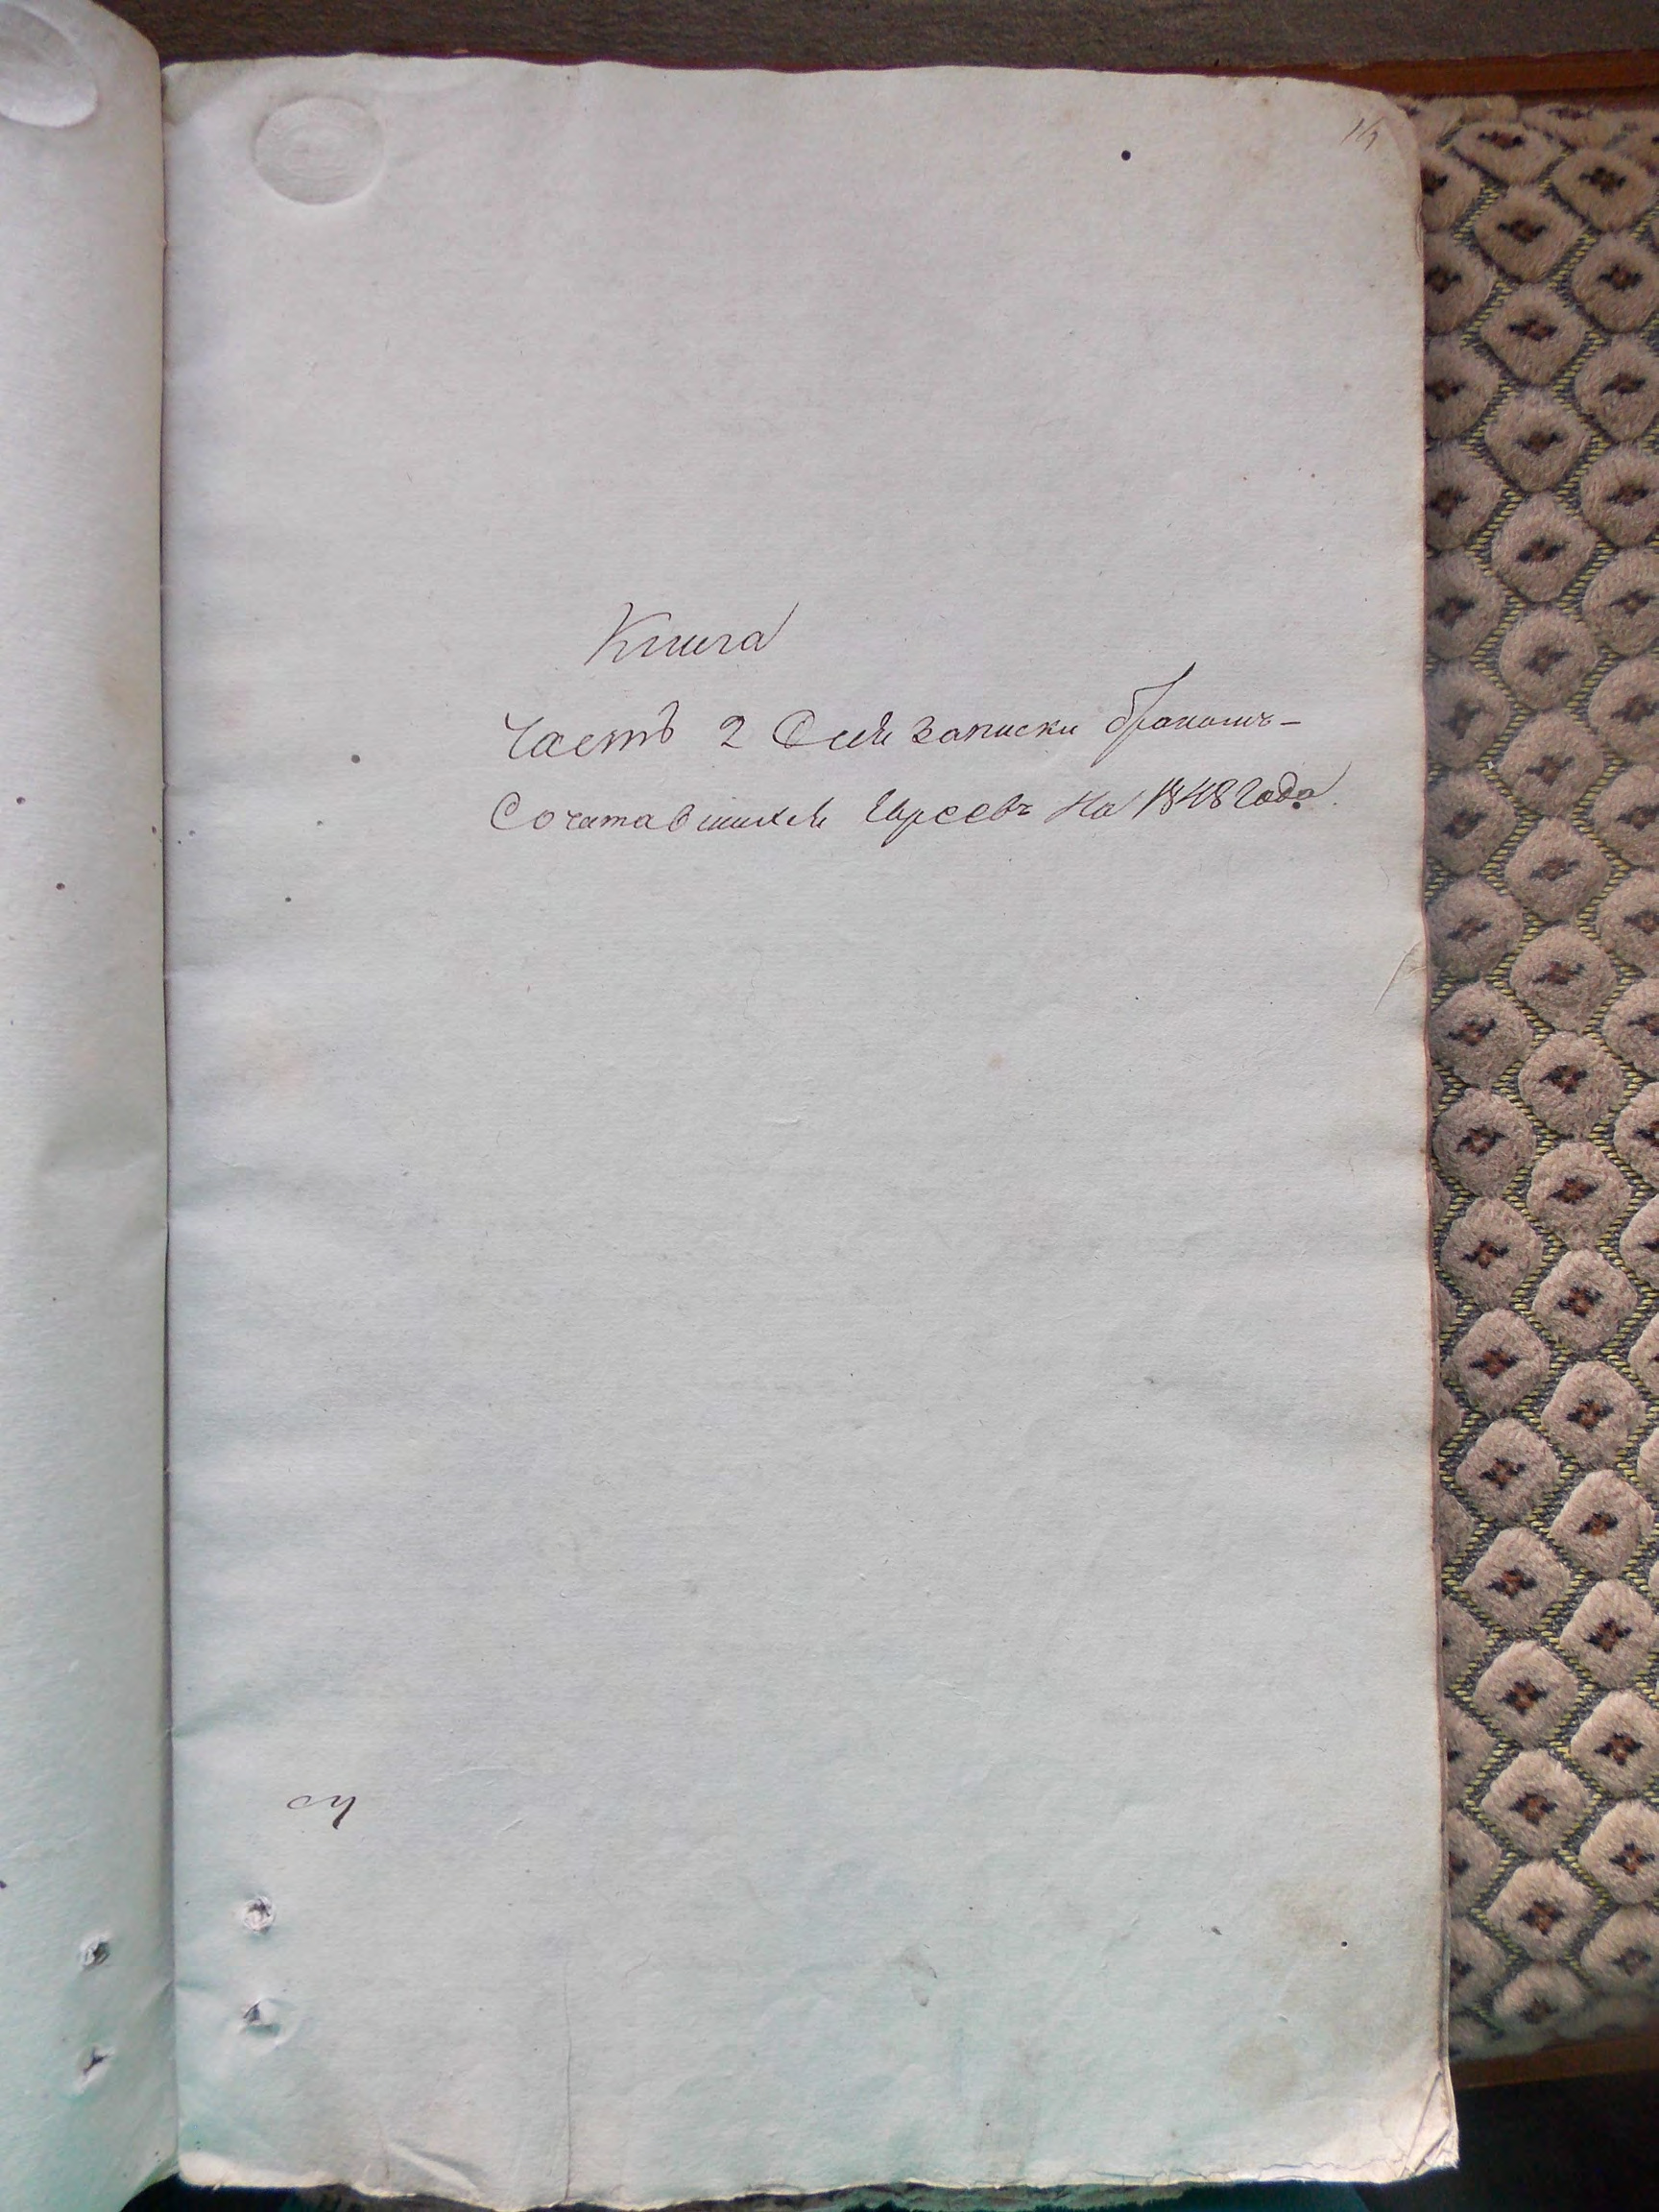 Книга
Часть 2 Для записки бракомъ-
Сочетавшихся Евреевъ На 1848 года.